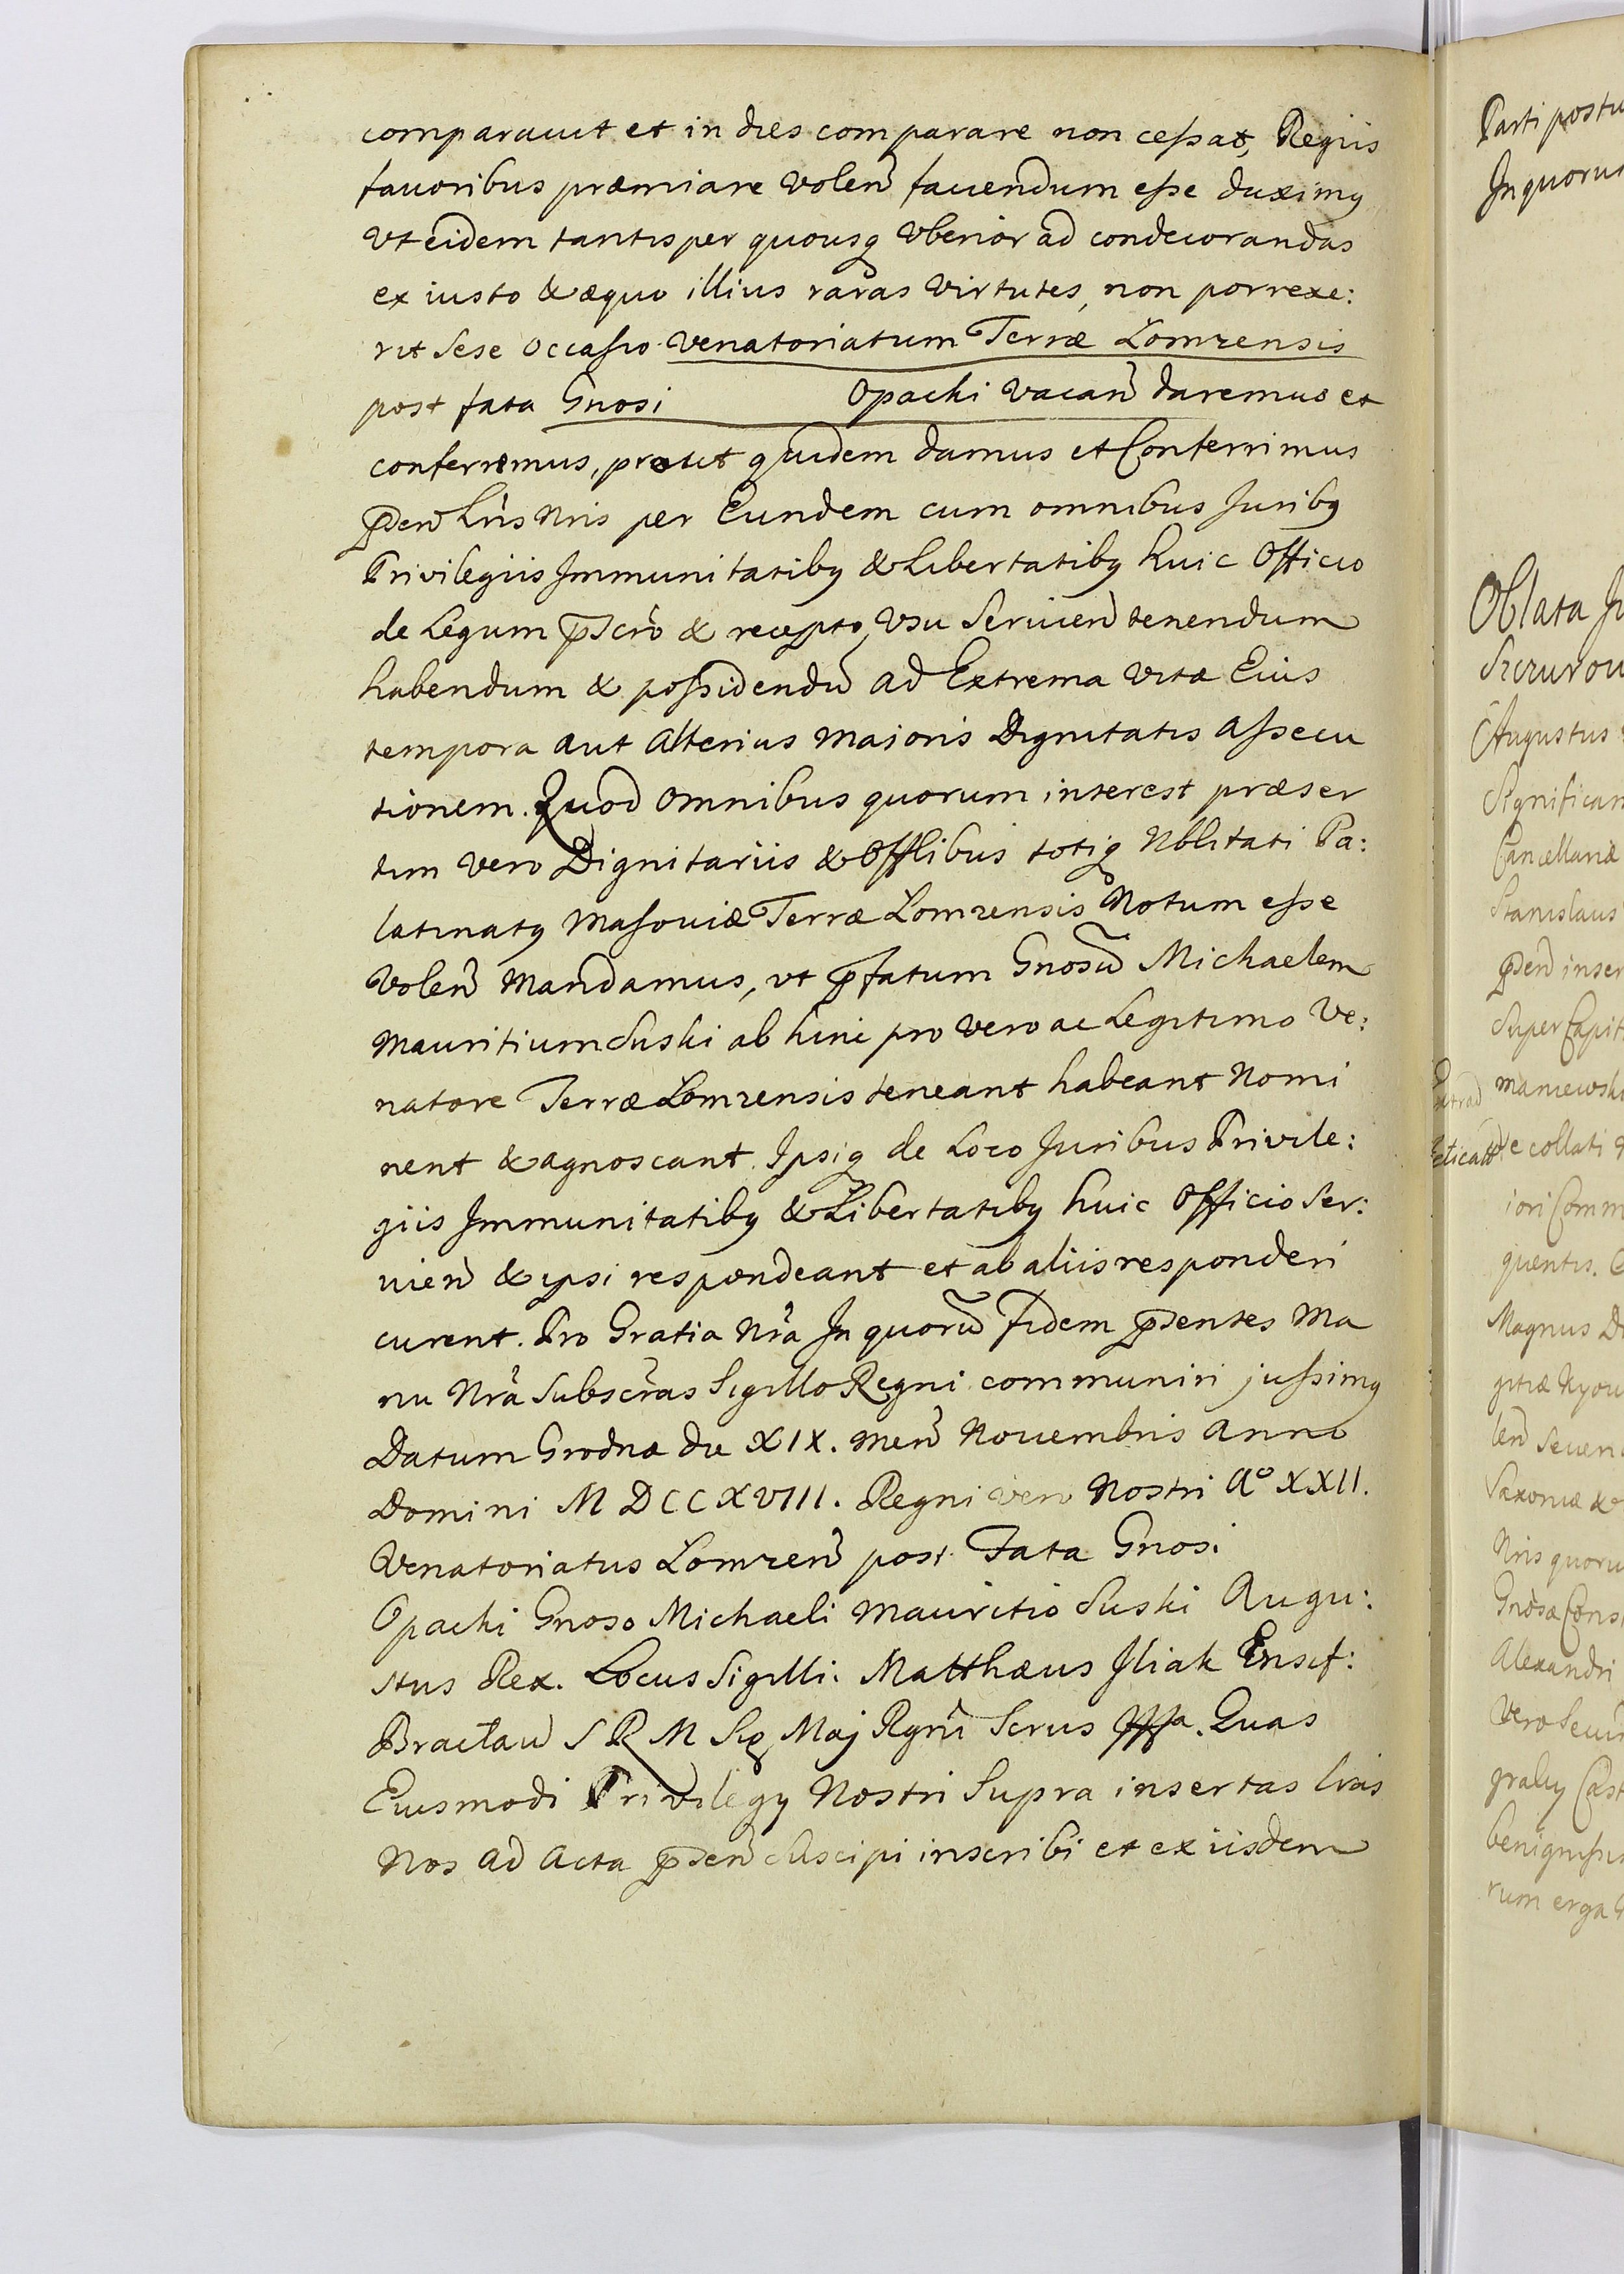 comparauit et in dies comparare non cessat, Regiis
fauoribus præmiare volen̄ fauendum esse duximꝰ
vt eidem tantisper quousqꝫ vberior ad condecorandas
ex iusto & æquo illius raras virtutes, non porrexe:
rit sese occasio Venatoriatum Terræ Lomzensis
post fata Gnosi Opacki vacan̄ daremus et
conferremus, prout quidem damus et Conferrimus
p̄sen̄ Lrīs Nris per Eundem cum omnibus Juribꝰ
Privilegiis Immunitatibꝰ & Libertatibꝰ huic Officio
de Legum p̄scr̄o & recepto, Vsu seruien̄ tenendum
habendum & possidendū ad Extrema vitæ Eius
tempora aut alterius Maioris Dignitatis assecu
tionem. Quod omnibus quorum interest præser
tim vero Dignitariis & Offlibus totiqꝫ Nblitati Pa:
latinatꝰ Masouiæ Terræ Lomzensis Notum esse
volen̄ Mandamus, vt p̄fatum Gnosū Michaelem
Mauritium Suski ab hinc pro vero ac Legitimo Ve:
natore Terræ Lomzensis teneant habeant Nomi
nent & agnoscant. Ipsiqꝫ de Loco Juribus Privile:
giis Immunitatibꝰ & Libertatibꝰ huic Officio ser:
uien̄ & ipsi respondeant et ab aliis responderi
curent. Pro Gratia Nr̄a In quorū fidem p̄sentes Ma
nu Nr̄a subscr̄as Sigillo Regni communiri jussimꝰ
Datum Grodnæ die XIX. men̄ Nouembris Anno
Domini M D C C XVIII. Regni vero Nostri Aº XXII.
Venatoriatus Lomzen̄ post Fata Gnosi
Opacki Gnoso Michaeli Mauritio Suski Augu:
stus Rex. Locus Sigilli. Matthæus Iliak Ensif:
Bracłau S R M Sig Maj Rgni Scrus Quas
Eiusmodi Privilegy Nostri Supra insertas lrās
Nos ad Acta p̄sen̄ suscipi inscribi et ex iisdem
Parti postu
In quorum
Oblata
Augustus
Significam
Cancellariæ
Stanislaus
p̄sen̄ inser
Super Capit
maniewski
e collati
iori Comm
quentis.
Magnus D
len̄ Seuen
Saxoniæ &
Nris quoru
Alexandri
rum erga